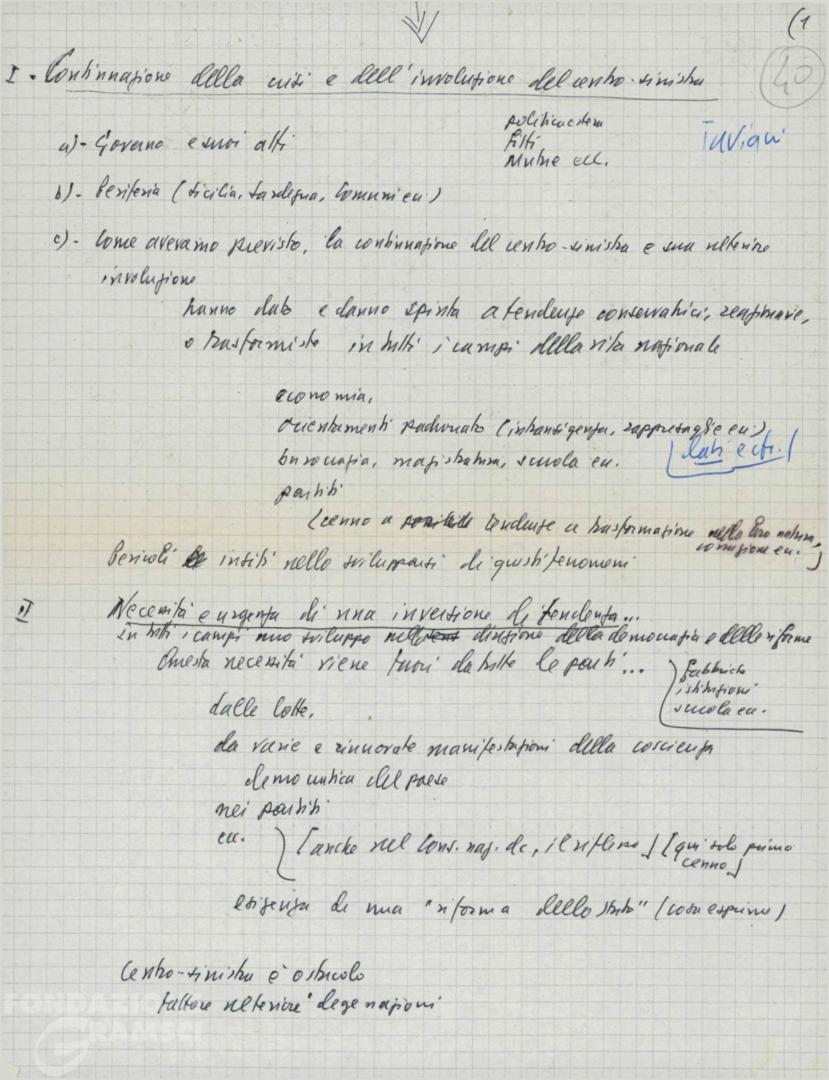 (1
40
I - Continuazione della crisi e dell'involuzione del centro-sinistra
a) - Governo e suoi atti
politica estera
fitti
Mutue ecc.
Taviani
b) - Periferia (Sicilia, Sardegna, Comuni ecc.)
c) - Come avevamo previsto, la continuazione del centro-sinistra e sua ulteriore
involuzione
hanno dato e danno spinta a tendenze conservatrici, reazionarie,
o trasformiste in tutti i campi della vita nazionale
economia,
orientamenti padronato (intransigenza, rappresaglie ecc.)
burocrazia, magistratura, scuola ecc.
[dati e cfr.]
partiti
[cenno a tendenze a trasformazione nella loro natura,
corruzione ecc.]
Pericoli insiti nello svilupparsi di questi fenomeni
II Necessità e urgenza di una inversione di tendenza...
in tutti i campi uno sviluppo nella direzione della democrazia e delle riforme
Questa necessità viene fuori da tutte le parti...
fabbriche
istituzioni
scuola ecc.
dalle lotte,
da varie e rinnovate manifestazioni della coscienza
democratica del paese
nei partiti
ecc.
[anche nel Cons. naz. dc, il riflesso] [qui solo primo
cenno]
esigenza di una "riforma dello stato" (cosa esprime)
Centro-sinistra è ostacolo
fattore ulteriore degenazioni
FONDAZIONE
GRAMSCI